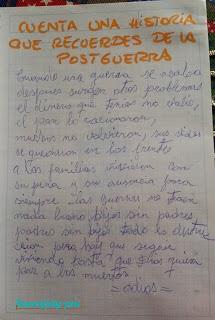 CUENTA UNA HISTORIA
QUE RECUERDES DE LA
POSTGUERRA
Cuando una guerra se acaba
despues surgen otros problemas
el dinero que tenias no valio,
el pan lo racionaron,
muchos no volvieron, sus vidas
se quedaron en los frentes
a las familias con
su pena y su ausencia para
siempre las guerras no traen
nada bueno hijos sin padres,
padres sin hijos todo lo destru
cion pero hay que seguir
viviendo hasta que Dios quiera
paz a los muertos. †
= adios =